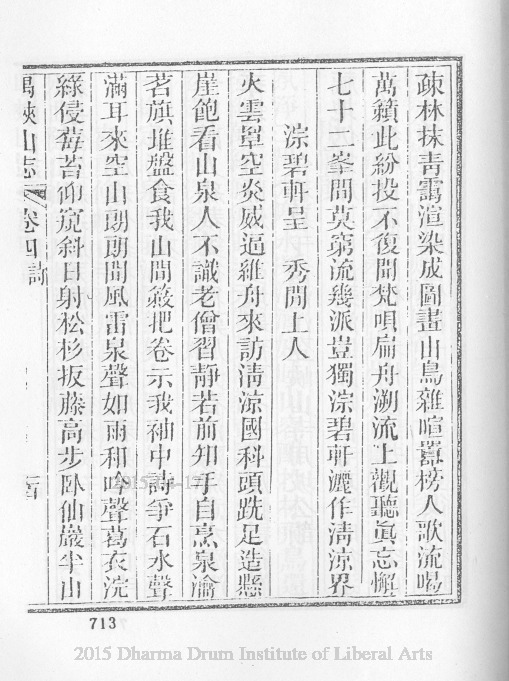 疎林抹青靄渲染成圖畫山鳥雜喧囂榜人歌流喝
萬籟此紛投不復聞梵唄扁舟溯流上觀聽眞忘懈
七十二峯間莫窮流幾派豈獨淙碧軒灑作清涼界
淙碧軒呈 秀閒上人
火雲罩空炎威逼維舟來訪清涼國科頭跣足造懸
崖飽看山泉人不識老僧習靜若前知手自烹泉瀹
茗旗堆盤食我山間蔌把卷示我袖中詩爭石水聲
滿耳來空山朗朗聞風雷泉聲如雨和吟聲葛衣浣
綠侵莓苔仰窺斜日射松杉扳藤高步臥仙巖半山
禺峽山志 卷四 詩
713
2015 Dharma Drum Institute of Liberal Arts